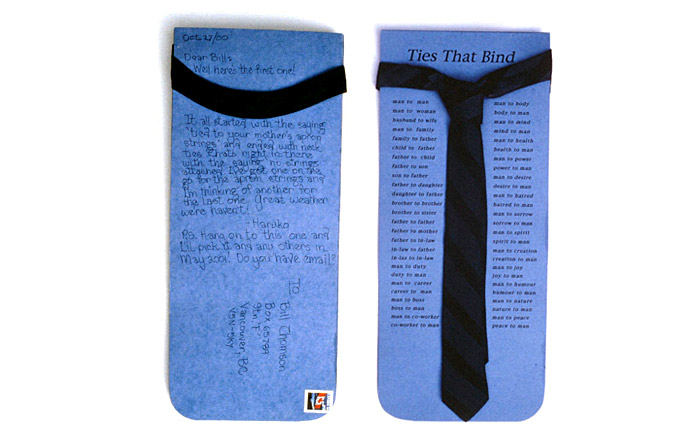 Oct 27/00
Dear Bill:
Well here's the first one!
It all started with the saying
"tied to your mother's apron
strings" and ended with neck
ties that's right in there
with the saying "no strings
attached". I've got one on the
go for the apron strings and
I'm thinking of another for
the last one. Great weather
were havent!
- Haruko
P.S. Hang on to this one and
I'll pick it and any others in
May 2001! Do you have email?
To
Bill Thomson
Stn. F.
Box 65784
Vancouver, BC
V5N-5K7
Ties That Bind
man to man
man to woman
husband to wife
man to family
family to father
child to father
father to child
father to son
son to father
father to daughter
daughter to father
brother to brother
brother to sister
father to father
father to mother
father to in-law
in-law to father
in-law to in-law
man to duty
duty to man
man to career
career to man
man to boss
boss to man
man to co-worker
co-worker to man
man to body
body to man
man to mind
mind to man
man to health
health to man
man to power
power to man
man to desire
desire to man
man to hatred
hatred to man
man to sorrow
sorrow to man
man to spirit
spirit to man
man to creation
creation to man
man to joy
joy to man
man to humour
humour to man
man to nature
nature to man
man to peace
peace to man